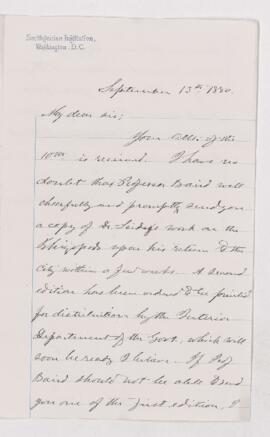 Smithsonian Institution,
Washington, D.C.
September 13th 1880.
My dear sir;
Your letter of the
10th is received. I have no
doubt that Professor Baird will
cheerfully and promptly send you
a copy of Dr. Leidy's work on the
Rhizopods upon his return to the
city within a few weeks. A second
edition has been ordered to be printed
for distribution by the Interior
Department of the Govt. which will
soon be ready I believe. If Prof
Baird should not be able to send
you one of the first edition, I